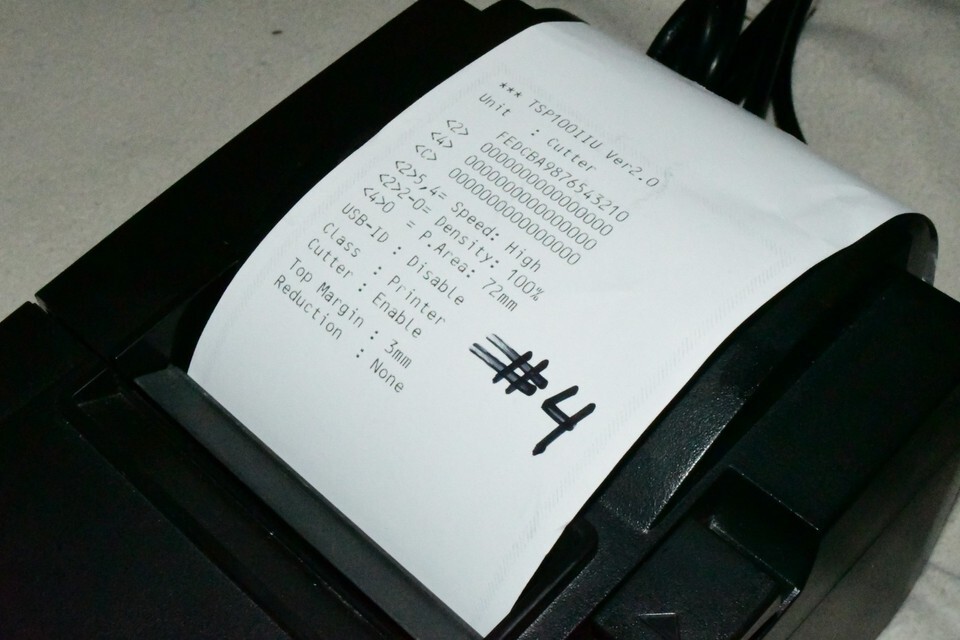 *** TSP100IIU Ver2.0
Unit : Cutter
FEDCBA9876543210
<2> 0000000000000000
<4> 0000000000000000
<C> 0000000000000000
<2>5,4= Speed: High
<2>2-0= Density: 100%
<4>0 = P.Area: 72mm
USB-ID : Disable
Class : Printer
Cutter : Enable
Top Margin : 3mm
Reduction : None
#4